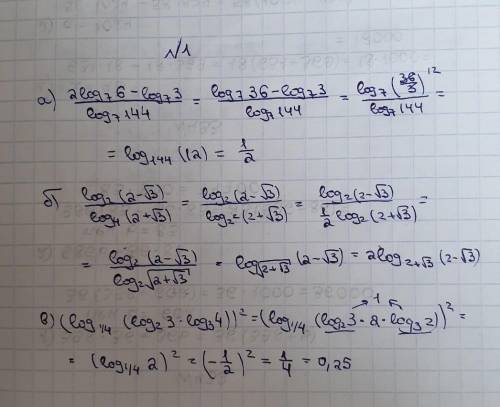 №1
а) (2log₇6 − log₇3)/(log₇144) = (log₇36 − log₇3)/(log₇144) = (log₇(36/3)¹²)/(log₇144) =
= log₁₄₄(12) = 1/2
б) (log₂(2−√3))/(log₄(2+√3)) = (log₂(2−√3))/(log₂²(2+√3)) = (log₂(2−√3))/(1/2 log₂(2+√3)) =
= (log₂(2−√3))/(log₂√(2+√3)) = log_√(2+√3) (2−√3) = 2log_2+√3 (2−√3)
в) (log_1/4 (log₂3 · log₃4))² = (log_1/4 (log₂3 · 2 · log₃2))² = 1
= (log_1/4 2)² = (−1/2)² = 1/4 = 0,25